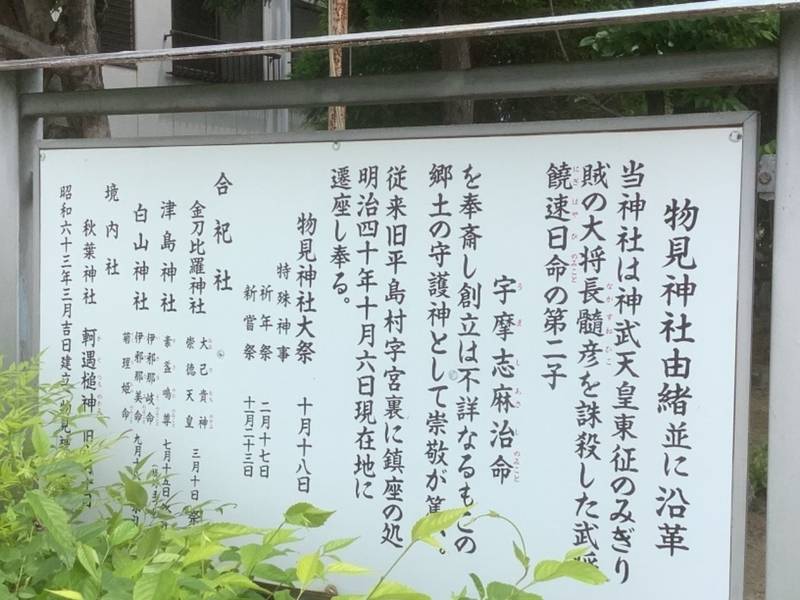 物見神社由緒並に沿革
当神社は神武天皇東征のみぎり
賊の大将長髓彦を誅殺した武将
饒速日命の第二子
宇摩志麻治命
を奉斎し創立は不詳なるもこの
郷土の守護神として崇敬が篤い。
従来旧平島村字宮裏に鎮座の処
明治四十年十月六日現在地に
遷座し奉る。
物見神社大祭 十月十八日
特殊神事
祈年祭 二月十七日
新嘗祭 十一月二十三日
合祀社
金刀比羅神社 大己貴神 崇德天皇 三月十日 祭
津島神社 素盞嗚尊 七月十五日
白山神社 伊邪那岐命 伊邪那美命 菊理姫命 九月
境内社
秋葉神社 軻遇槌神 旧
昭和六十三年三月吉日建立 物見